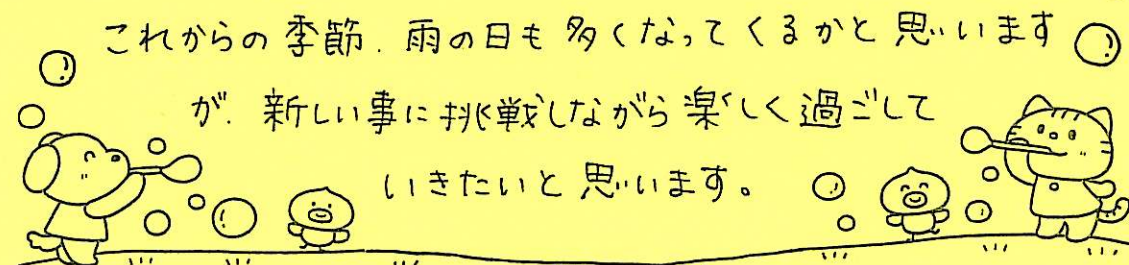 これからの季節．雨の日も多くなってくるかと思います
が．新しい事に挑戦しながら楽しく過ごして
いきたいと思います。